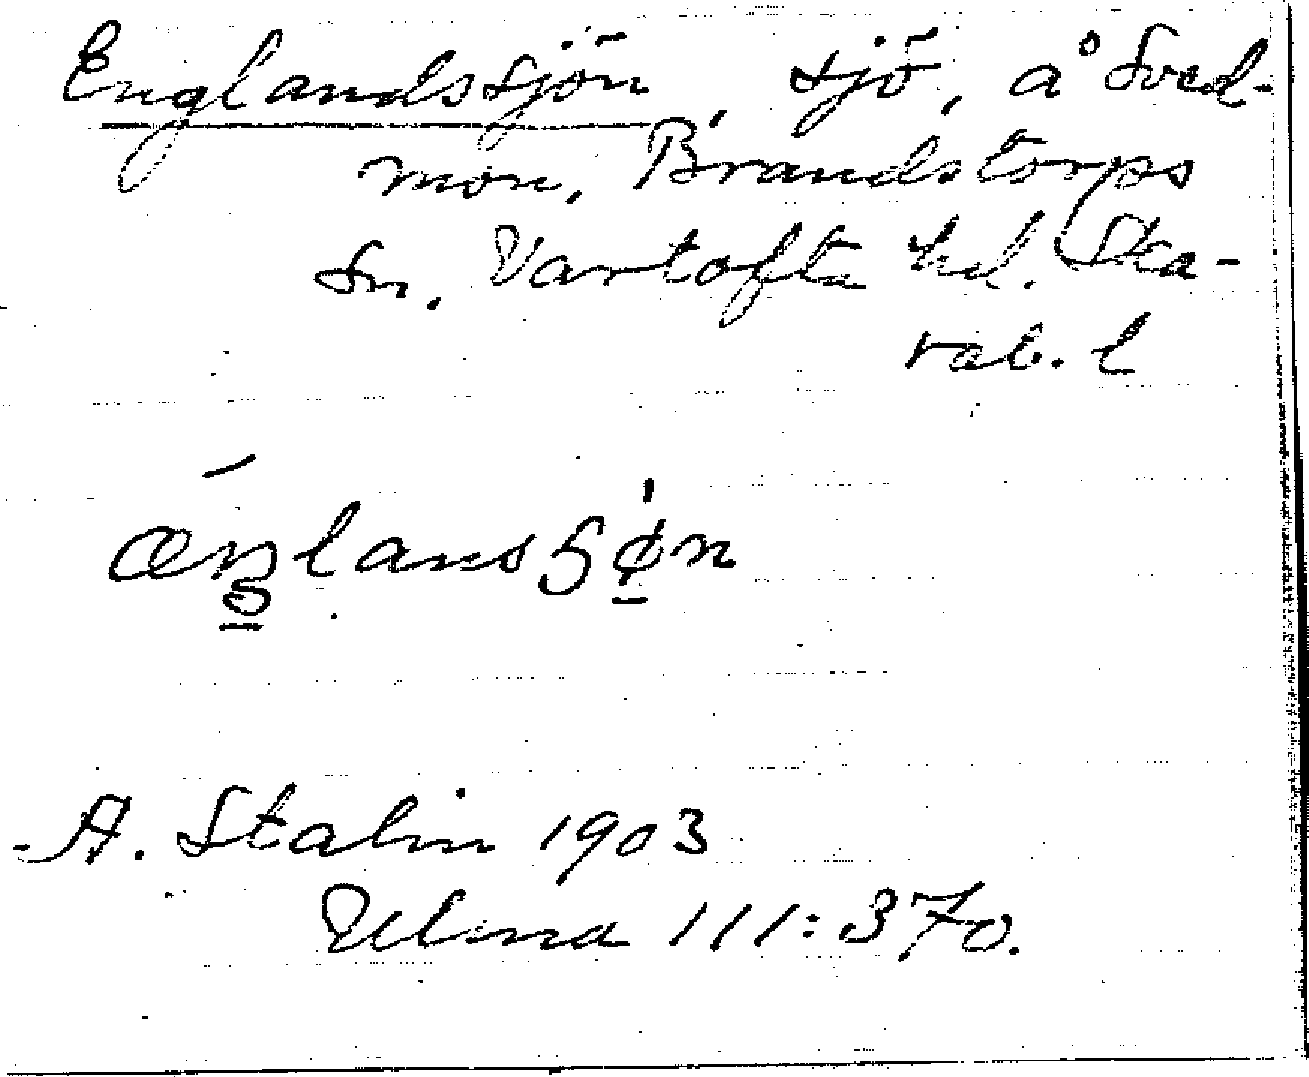 Englandssjön, sjö, å Sved-
mon, Brandstorps
sn. Vartofta hd. Ska-
rab. l
æŋlansʃøn
A. Stalin 1903
Ulma 111:370.